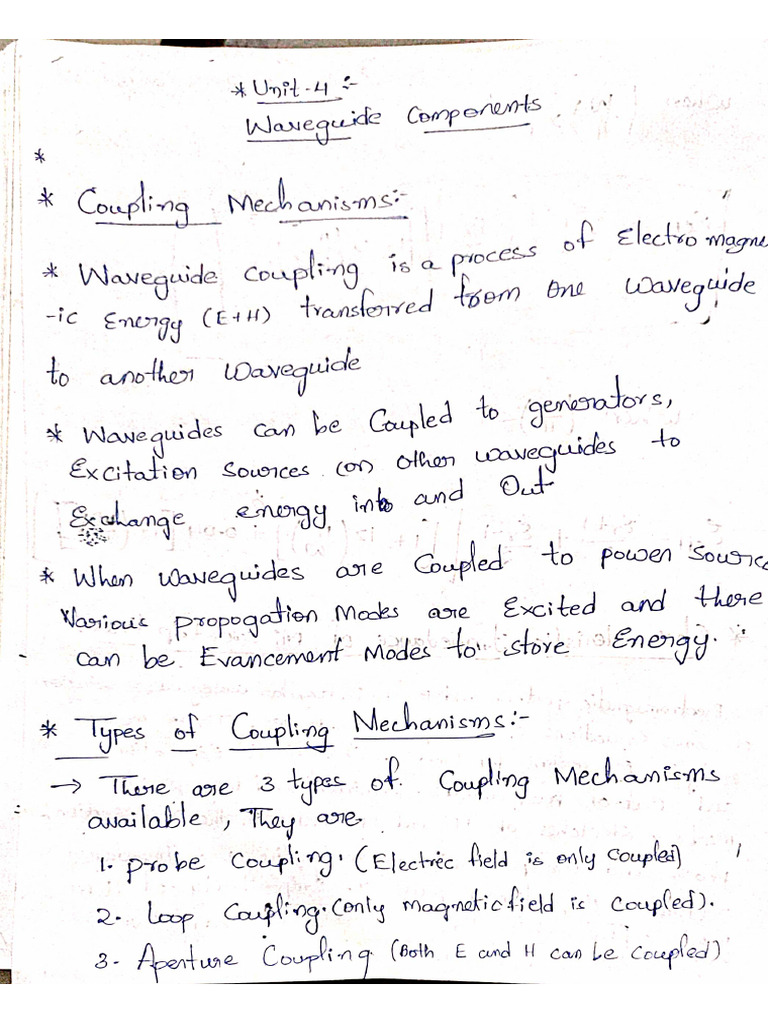 * Unit-4 :-
Waveguide Components
*
* Coupling Mechanisms:-
* Waveguide coupling is a process of Electromagne
-ic Energy (E+H) transferred from one waveguide
to another waveguide
* Waveguides can be Coupled to generators,
Excitation Sources (or) other waveguides to
Exchange energy into and Out
* When waveguides are Coupled to power Source
Various propogation Modes are Excited and there
can be Evancement Modes to store Energy.
* Types of Coupling Mechanisms:-
→ There are 3 types of Coupling Mechanisms
available, They are
1. Probe Coupling. (Electric field is only coupled)
2. Loop Coupling. (only magnetic field is coupled).
3. Aperture Coupling (Both E and H can be coupled)